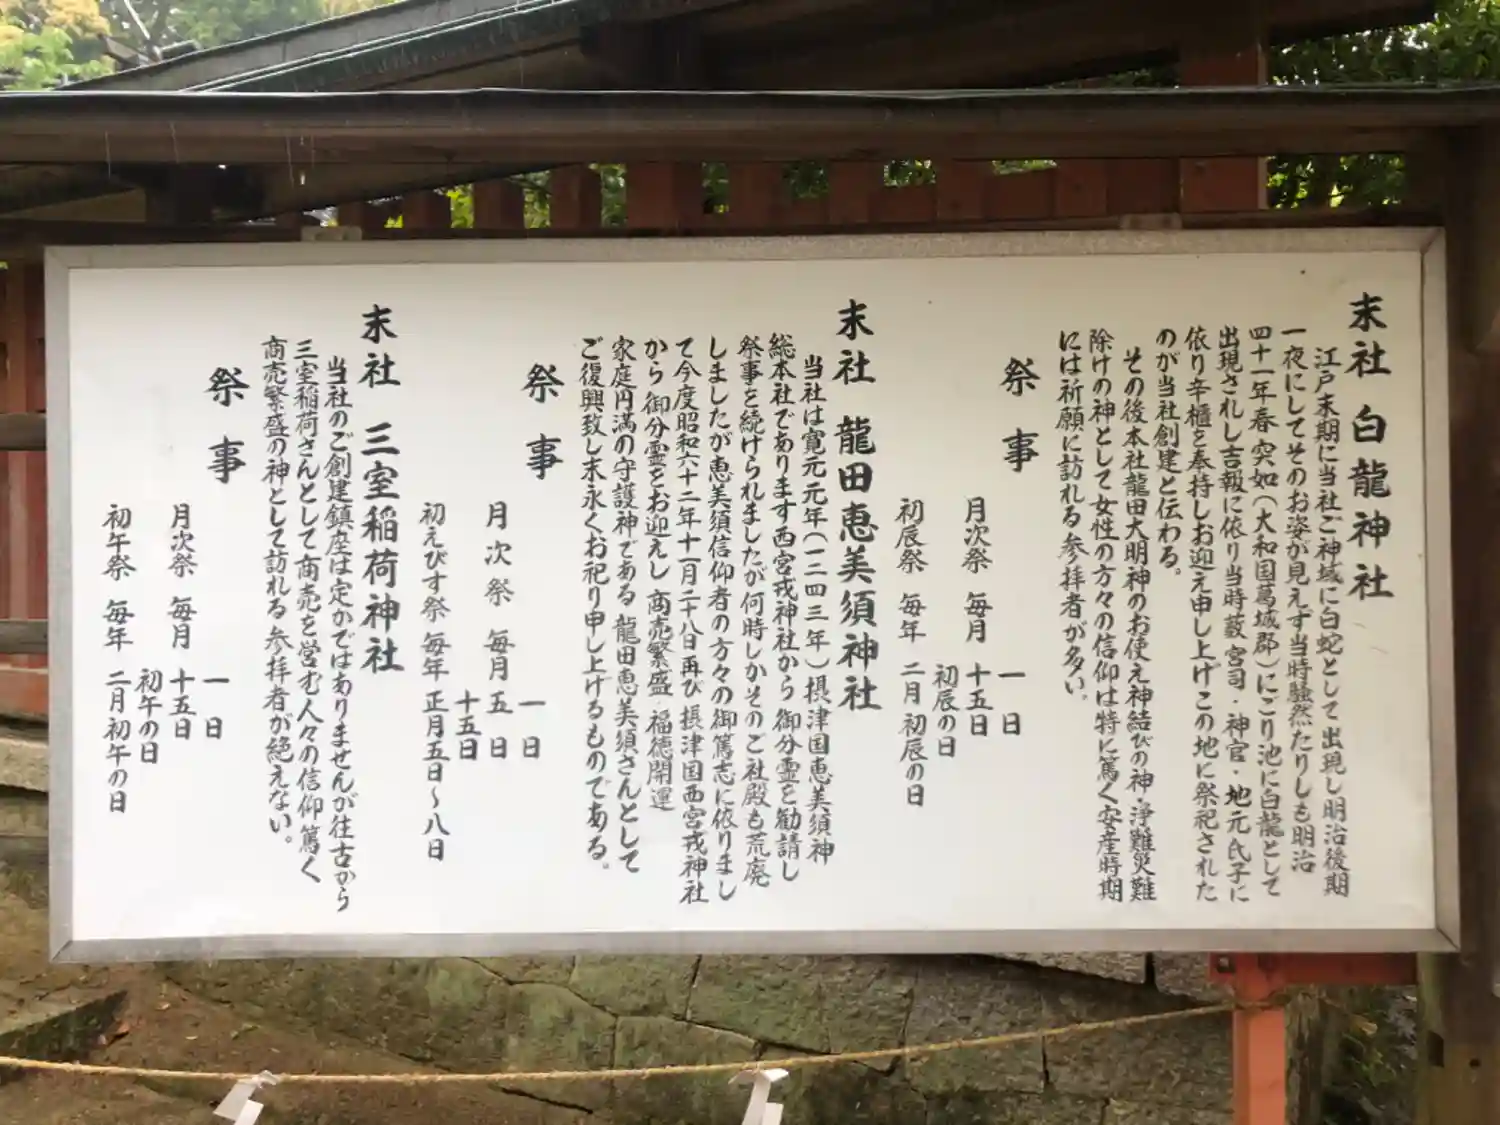 末社 白龍神社
江戸末期に当社ご神域に白蛇として出現し明治後期
一夜にしてそのお姿が見えず当時騒然たりしも明治
四十一年春突如(大和国葛城郡)にごり池に白龍として
出現されし吉報に依り当時藪宮司・神官・地元氏子に
依り辛櫃を奉持しお迎え申し上げこの地に祭祀された
のが当社創建と伝わる。
その後本社龍田大明神のお使え神結びの神・浄難災難
除けの神として女性の方々の信仰は特に篤く安産時期
には祈願に訪れる参拝者が多い。
祭事
月次祭 毎月 一日
十五日
初辰の日
初辰祭 毎年 二月初辰の日
末社 龍田恵美須神社
当社は寛元元年(一二四三年)摂津国恵美須神
総本社であります西宮戎神社から御分霊を勧請し
祭事を続けられましたが何時しかそのご社殿も荒廃
しましたが恵美須信仰者の方々の御篤志に依りまし
て今度昭和六十二年十一月二十八日再び摂津国西宮戎神社
から御分霊をお迎えし商売繁盛・福徳開運
家庭円満の守護神である龍田恵美須さんとして
ご復興致し末永くお祀り申し上げるものである。
祭事
月次祭 毎月 一日
五日
十五日
初えびす祭 毎年 正月五日～八日
末社 三室稲荷神社
当社のご創建鎮座は定かではありませんが往古から
三室稲荷さんとして商売を営む人々の信仰篤く
商売繁盛の神として訪れる参拝者が絶えない。
祭事
月次祭 毎月 一日
十五日
初午の日
初午祭 毎年 二月初午の日